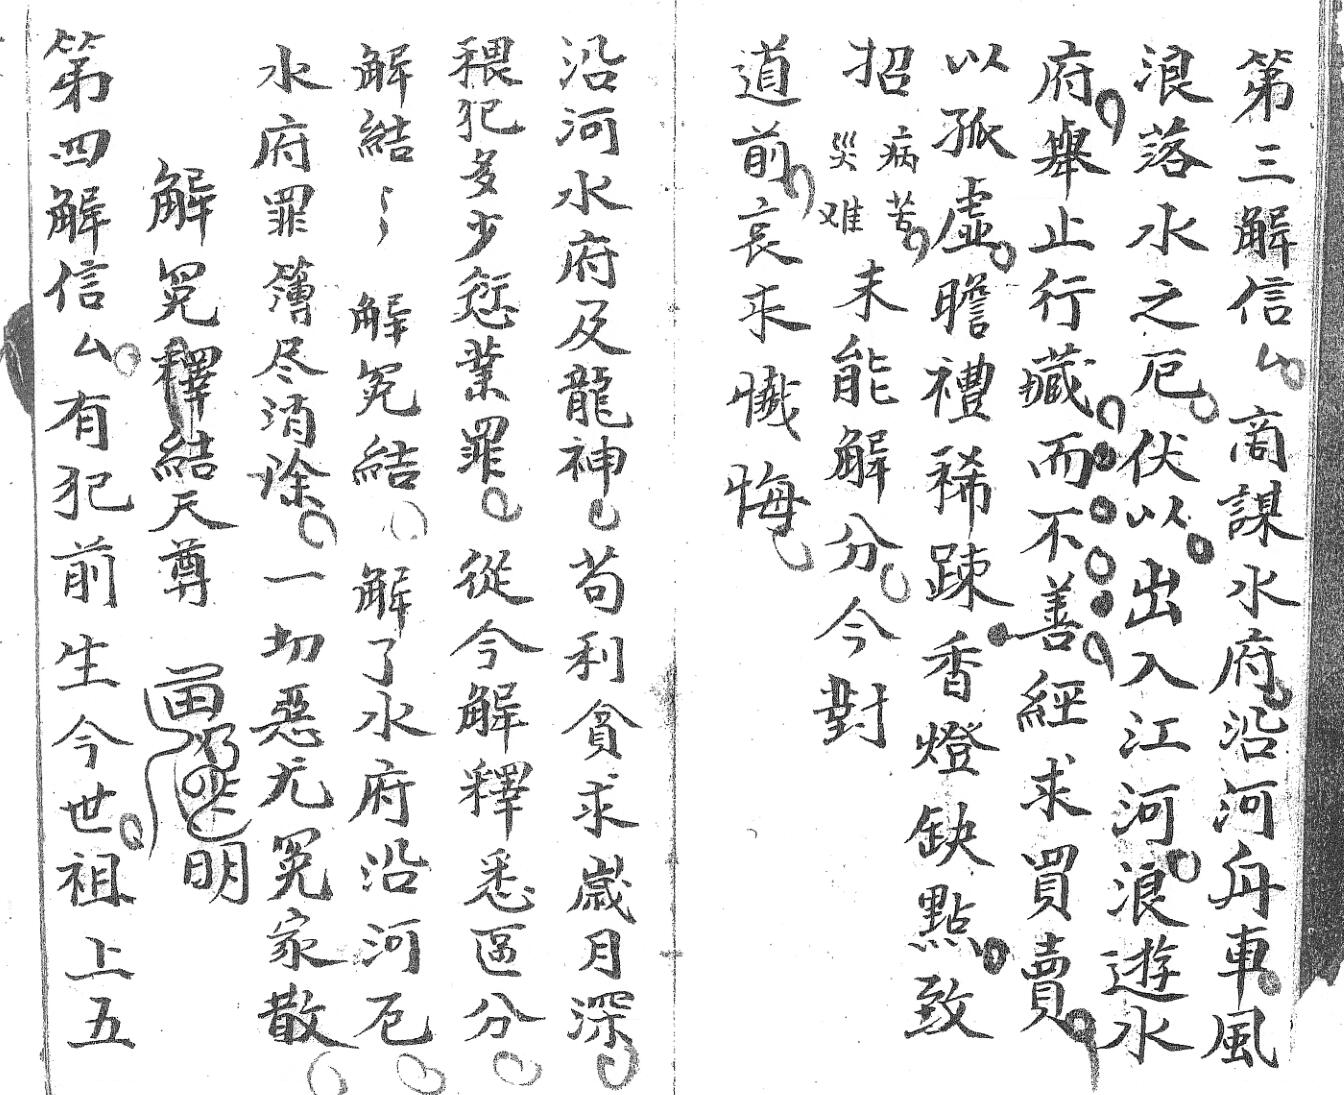 第三解信厶商謀水府沿河舟車風
浪落水之厄伏以出入江河浪遊水
府舉止行藏而不善經求買賣
以孤虛瞻禮稀踈香燈缺點致
招病苦災难未能解分今對
道前哀求懺悔
沿河水府及龍神苟利貪求歲月深
猥犯多少愆業罪從今解釋悉區分
解結〻解冤結解了水府沿河厄
水府罪簿尽消除一切惡尤冤家散
解冤釋結天尊 明
第四解信厶有犯前生今世祖上五